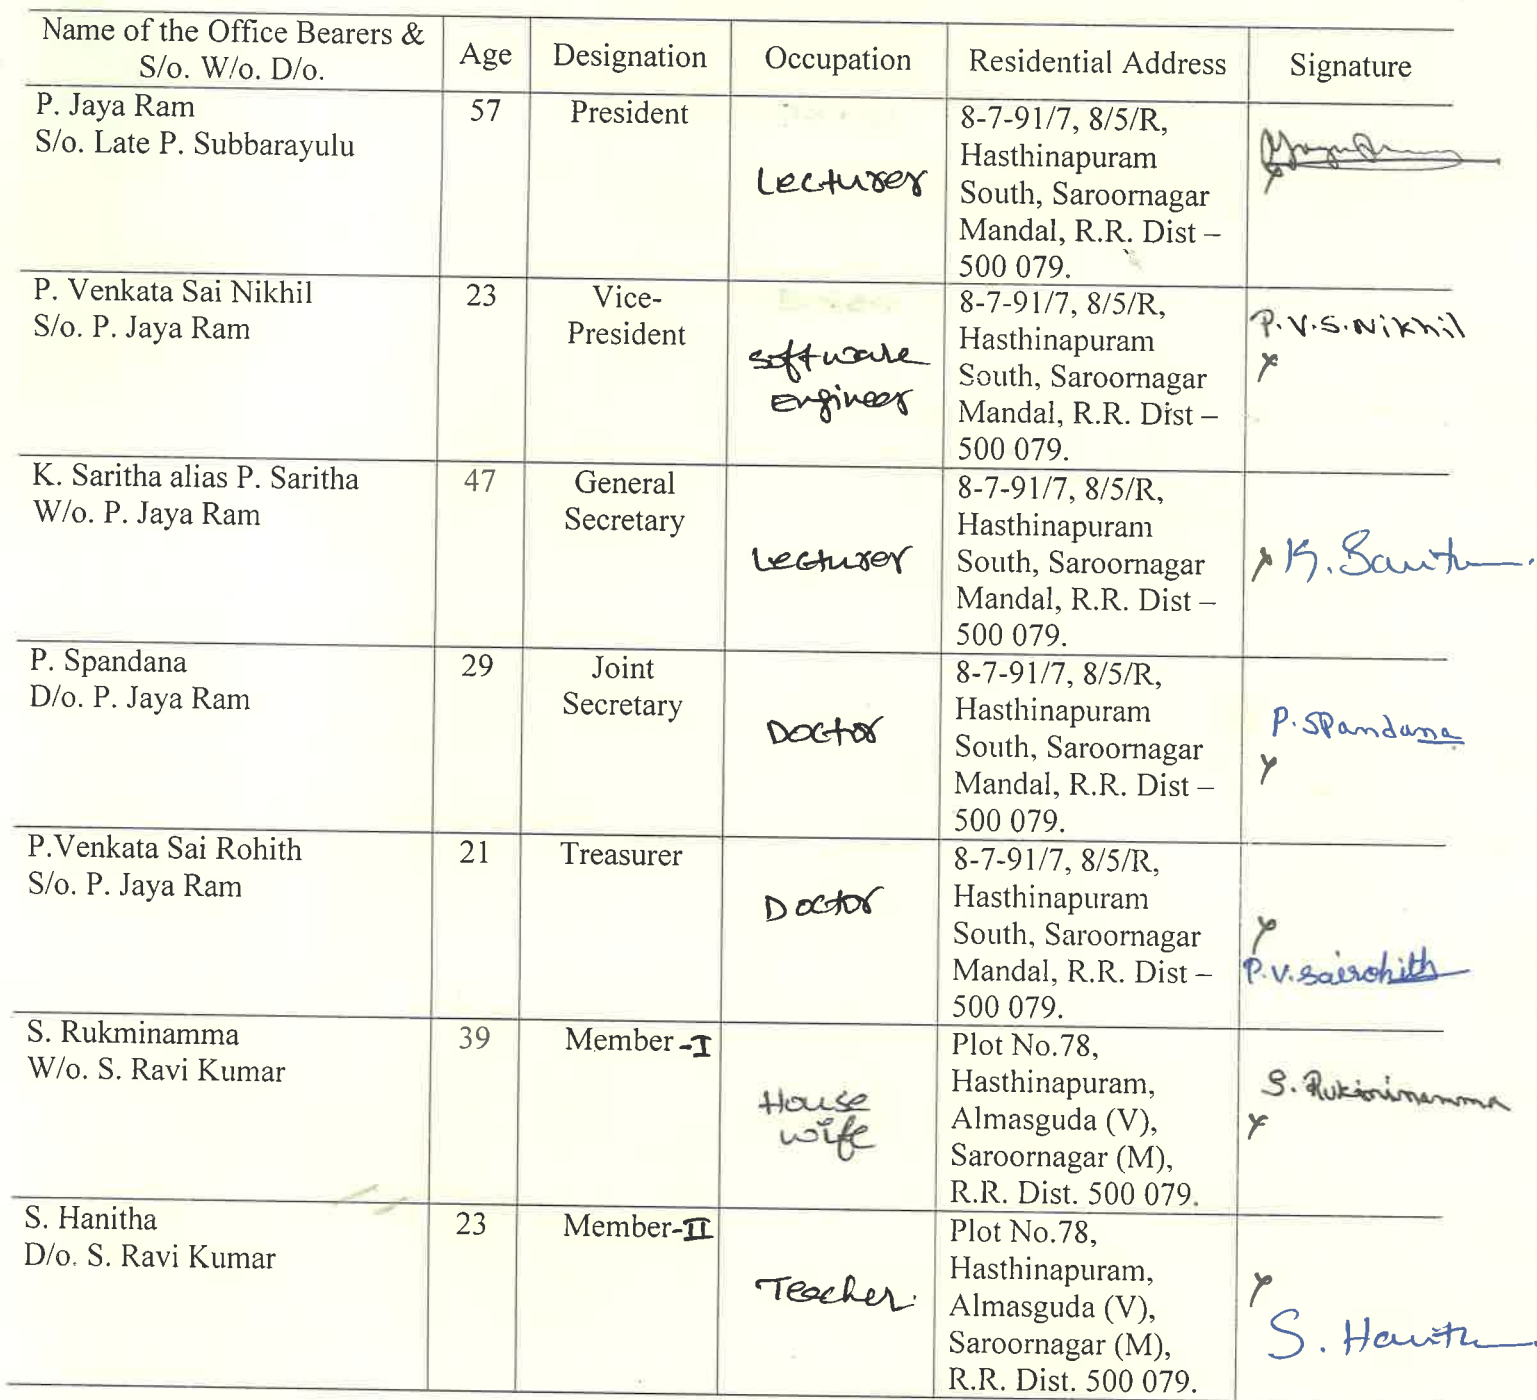 Name of the Office Bearers &
S/o. W/o. D/o.
Age
Designation
Occupation
Residential Address
Signature
P. Jaya Ram
S/o. Late P. Subbarayulu
57
President
Lecturer
8-7-91/7, 8/5/R,
Hasthinapuram
South, Saroornagar
Mandal, R.R. Dist –
500 079.
P. Venkata Sai Nikhil
S/o. P. Jaya Ram
23
Vice-
President
Software
Engineer
8-7-91/7, 8/5/R,
Hasthinapuram
South, Saroornagar
Mandal, R.R. Dist –
500 079.
P.V.S.Nikhil
K. Saritha alias P. Saritha
W/o. P. Jaya Ram
47
General
Secretary
Lecturer
8-7-91/7, 8/5/R,
Hasthinapuram
South, Saroornagar
Mandal, R.R. Dist –
500 079.
K.
P. Spandana
D/o. P. Jaya Ram
29
Joint
Secretary
Doctor
8-7-91/7, 8/5/R,
Hasthinapuram
South, Saroornagar
Mandal, R.R. Dist –
500 079.
P. Spandana
P.Venkata Sai Rohith
S/o. P. Jaya Ram
21
Treasurer
Doctor
8-7-91/7, 8/5/R,
Hasthinapuram
South, Saroornagar
Mandal, R.R. Dist –
500 079.
P.V.Sairohith
S. Rukminamma
W/o. S. Ravi Kumar
39
Member-I
House
wife
Plot No.78,
Hasthinapuram,
Almasguda (V),
Saroornagar (M),
R.R. Dist. 500 079.
S. Rukminamma
S. Hanitha
D/o. S. Ravi Kumar
23
Member-II
Teacher.
Plot No.78,
Hasthinapuram,
Almasguda (V),
Saroornagar (M),
R.R. Dist. 500 079.
S.